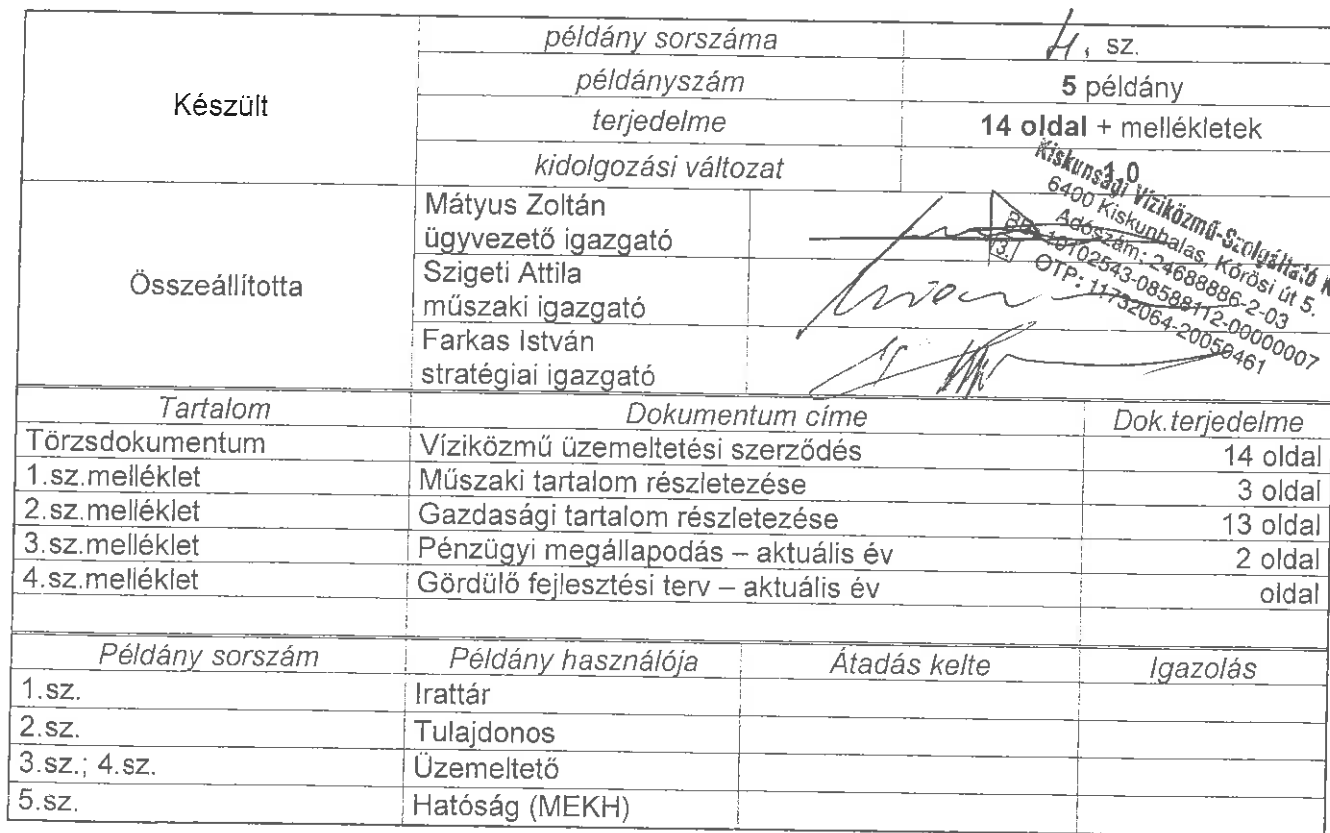 Készült
példány sorszáma
4. sz.
példányszám
5 példány
terjedelme
14 oldal + mellékletek
kidolgozási változat
1.0
Összeállította
Mátyus Zoltán
ügyvezető igazgató
Szigeti Attila
műszaki igazgató
Farkas István
stratégiai igazgató
Kiskunsági Víziközmű-Szolgáltató K
6400 Kiskunhalas, Kőrösi út 5.
Adószám: 24688886-2-03
BB: 10102543-08588112-00000007
OTP: 11732064-20050461
3.
Tartalom Dokumentum címe Dok.terjedelme
Törzsdokumentum Víziközmű üzemeltetési szerződés 14 oldal
1.sz.melléklet Műszaki tartalom részletezése 3 oldal
2.sz.melléklet Gazdasági tartalom részletezése 13 oldal
3.sz.melléklet Pénzügyi megállapodás – aktuális év 2 oldal
4.sz.melléklet Gördülő fejlesztési terv – aktuális év oldal
Példány sorszám Példány használója Átadás kelte Igazolás
1.sz. Irattár
2.sz. Tulajdonos
3.sz.; 4.sz. Üzemeltető
5.sz. Hatóság (MEKH)